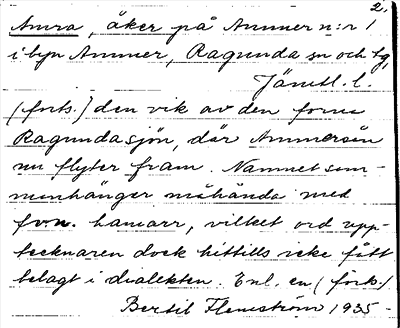 2.
Amra, åker på Ammer n:r 1
i byn Ammer, Ragunda sn och tg,
Jämtl. l.
(forts.) den vik av den forna
Ragundasjön, där Ammerån
nu flyter fram. Namnet sam-
manhänger måhända med
fvn. hamarr, vilket ord upp-
tecknaren dock hittills icke fått
belagt i dialekten. Enl. en (forts.)
Bertil Flemström 1935